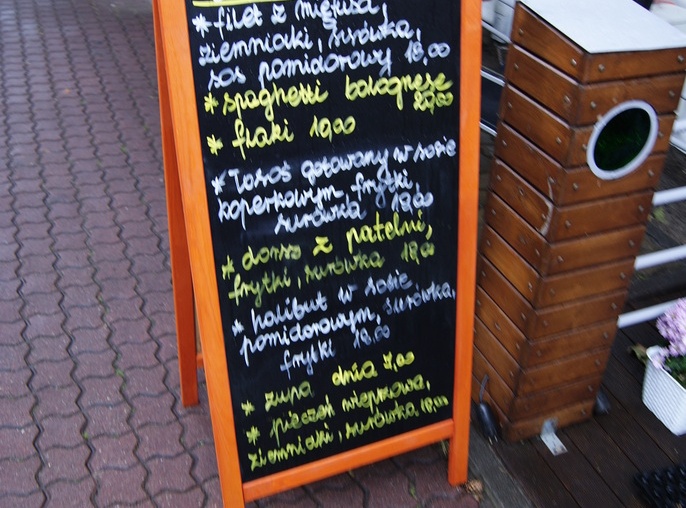 * filet z miętusa,
ziemniaki, surówka,
sos pomidorowy 18,00
* spaghetti bolognese
20,00
* flaki 19,00
* Łosoś gotowany w sosie
koperkowym, frytki,
surówka 19,00
* dorsz z patelni,
frytki, surówka 18,00
* halibut w sosie
pomidorowym, surówka,
frytki 18,00
* zupa dnia 7,00
* pieczeń wieprzowa,
ziemniaki, surówka 18,00